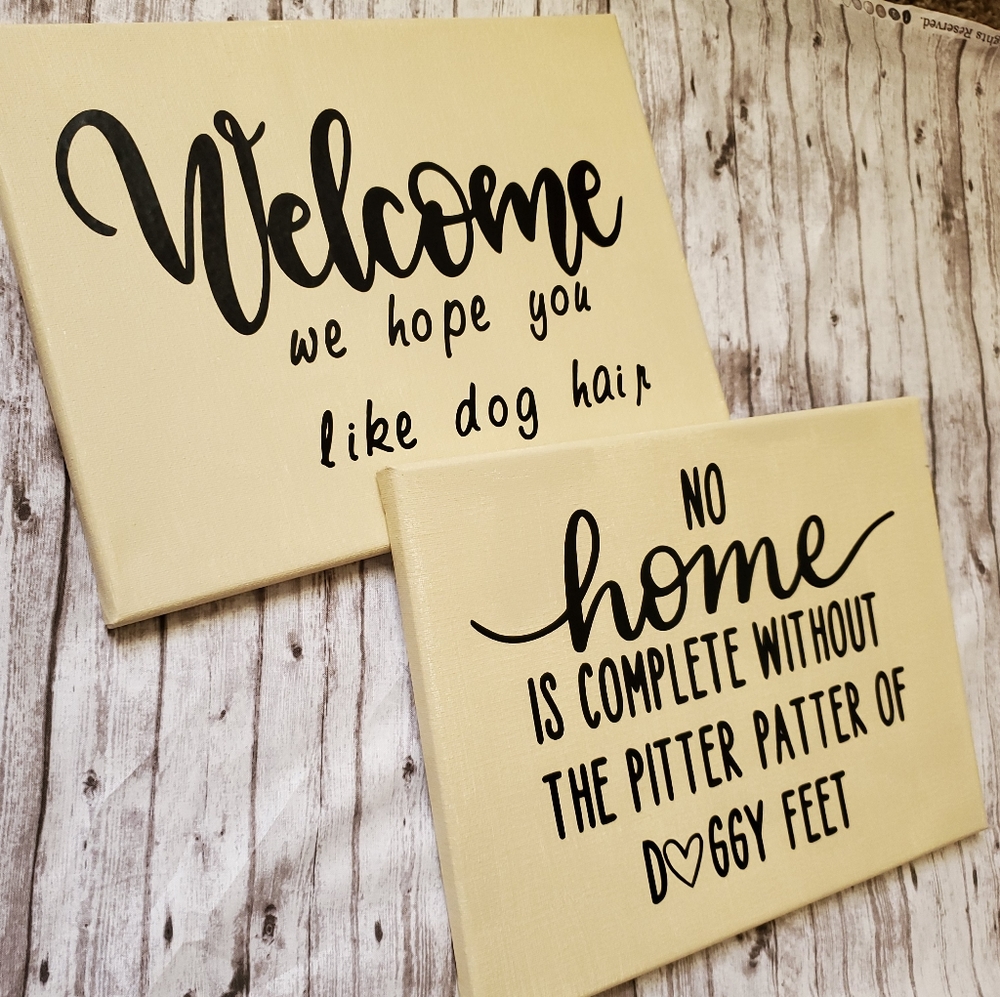 ghts Reserved.
Welcome
we hope you
like dog hair
NO
home
IS COMPLETE WITHOUT
THE PITTER PATTER OF
D♡GGY FEET